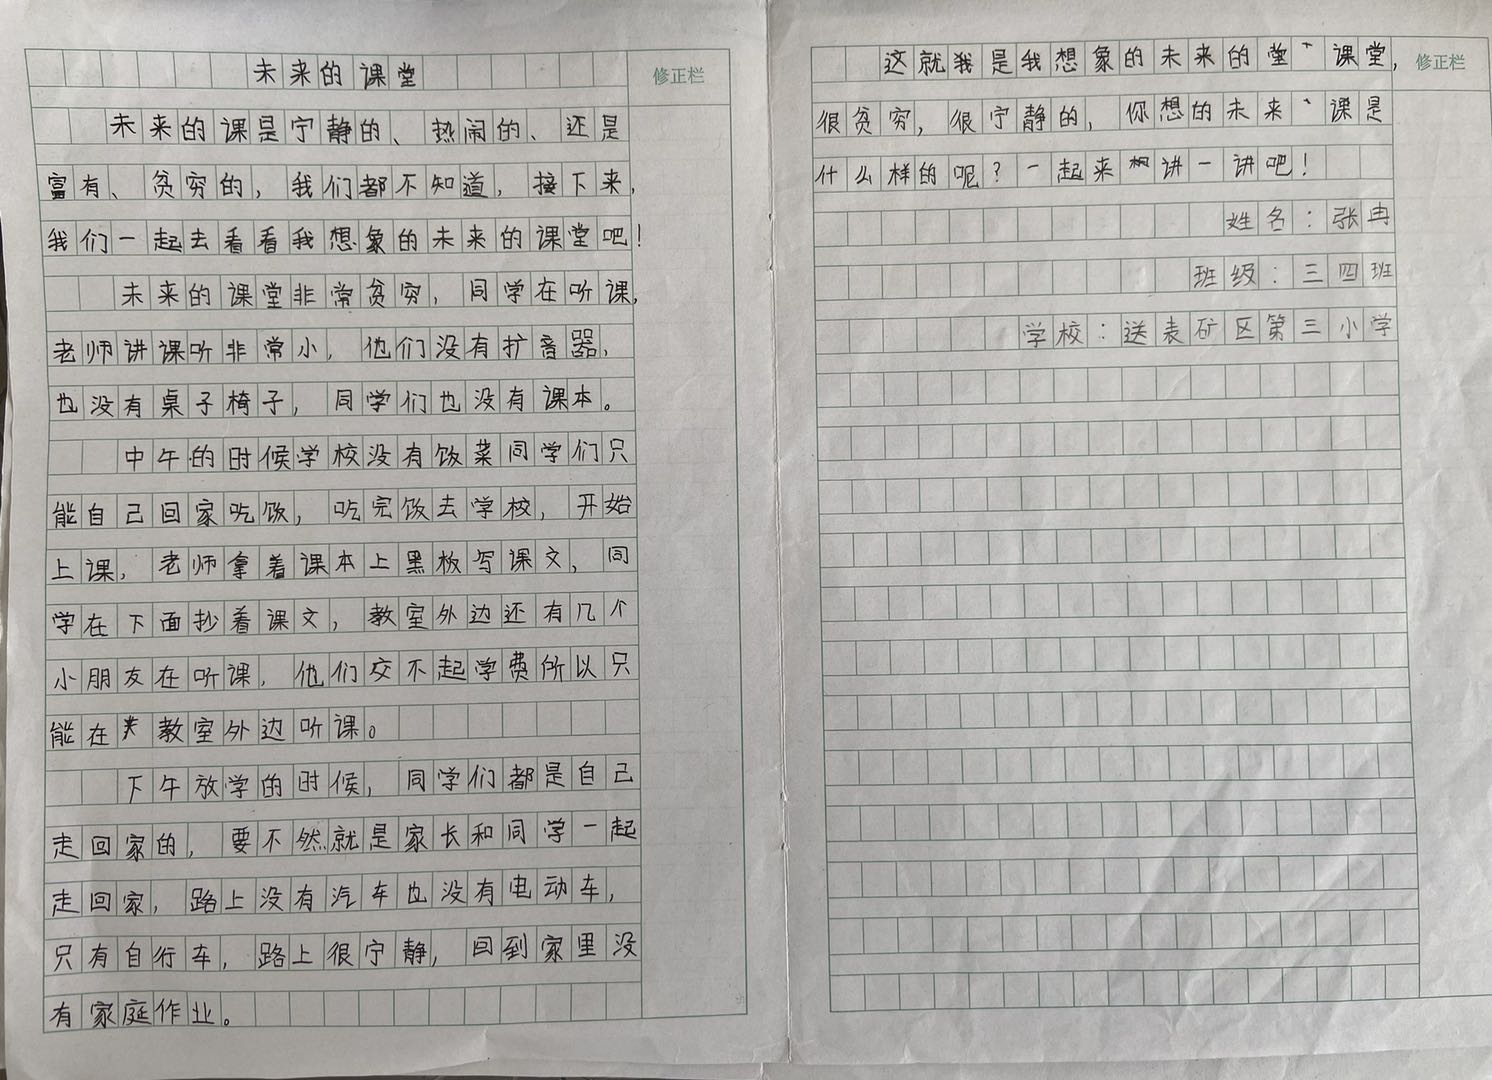 未来的课堂
修正栏
未来的课是宁静的、热闹的、还是
富有、贫穷的，我们都不知道，接下来，
我们一起去看看我想象的未来的课堂吧！
未来的课堂非常贫穷，同学在听课，
老师讲课听非常小，他们没有扩音器，
也没有桌子椅子，同学们也没有课本。
中午的时候学校没有饭菜同学们只
能自己回家吃饭，吃完饭去学校，开始
上课，老师拿着课本上黑板写课文，同
学在下面抄着课文，教室外边还有几个
小朋友在听课，他们交不起学费所以只
能在教室外边听课。
下午放学的时候，同学们都是自己
走回家的，要不然就是家长和同学一起
走回家，路上没有汽车也没有电动车，
只有自行车，路上很宁静，回到家里没
有家庭作业。
这就我是我想象的未来的堂、课堂，
修正栏
很贫穷，很宁静的，你想的未来、课是
什么样的呢？一起来讲一讲吧！
姓名：张冉
班级：三四班
学校：送表矿区第三小学